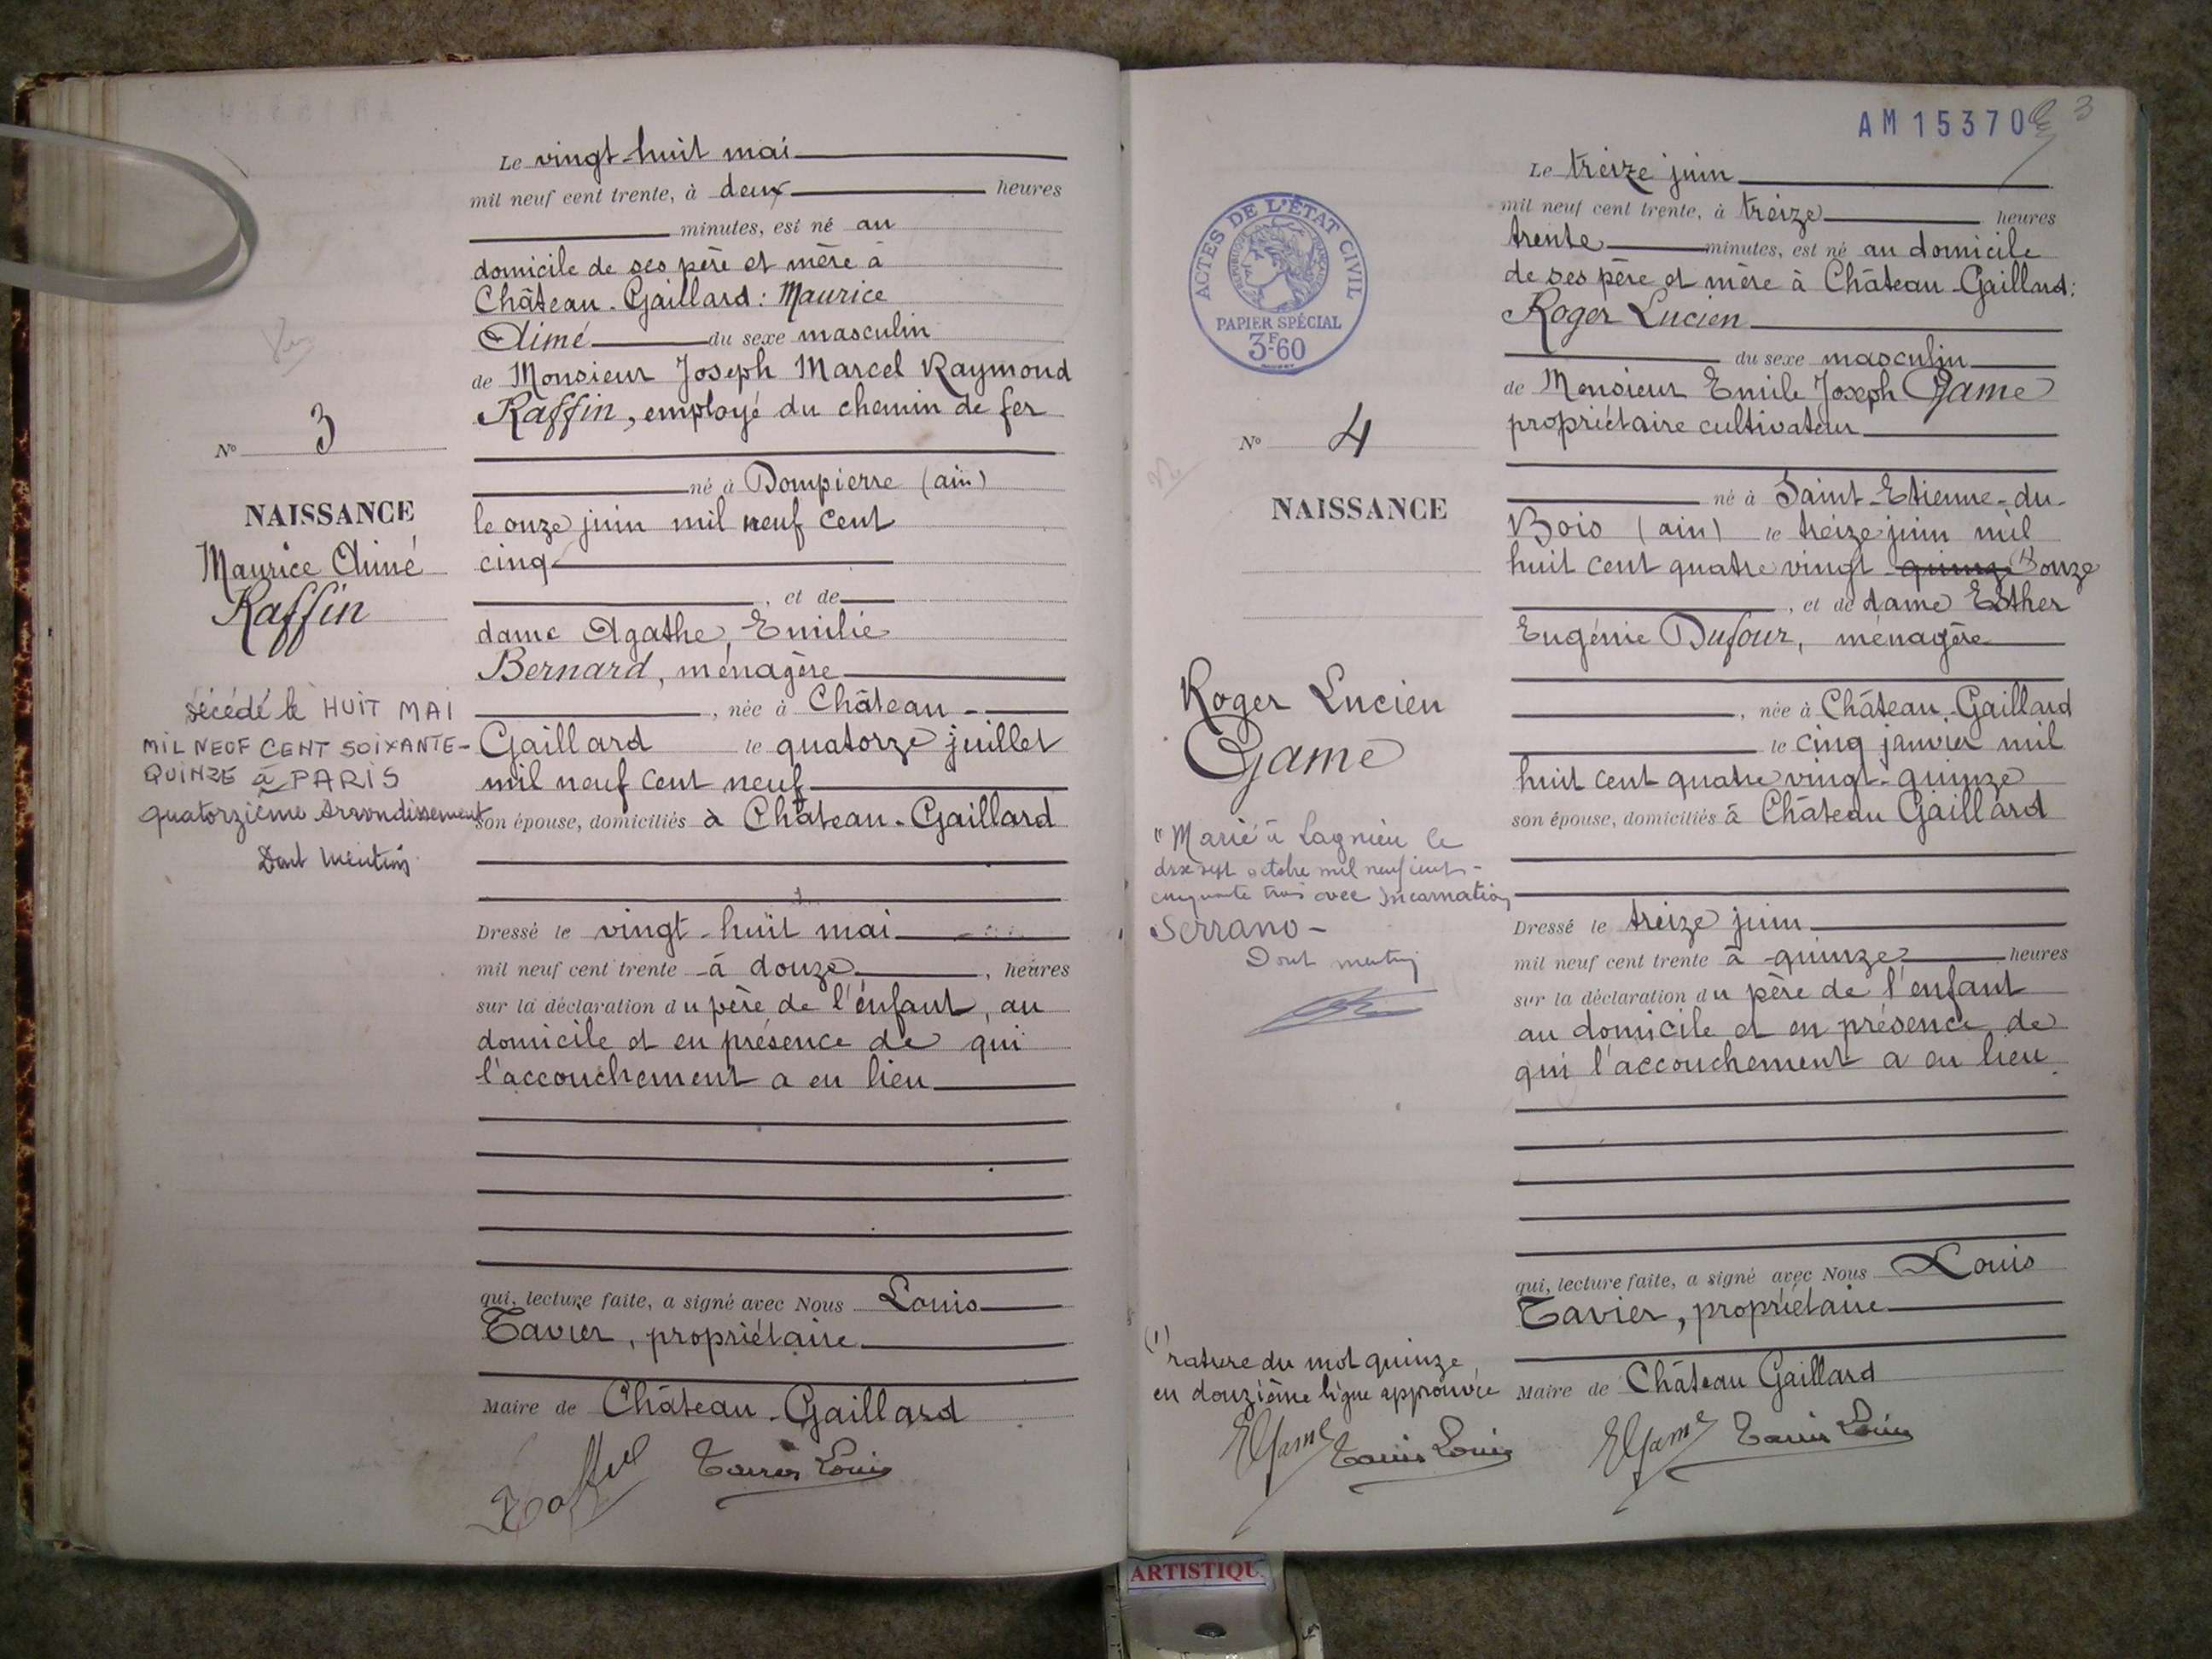 Le vingt-huit mai
mil neuf cent trente, à deux heures
minutes, est né au
domicile de ses père et mère à
Château-Gaillard : Maurice
Aimé du sexe masculin
de Monsieur Joseph Marcel Raymond
Raffin, employé du chemin de fer
né à Dompierre (ain)
le onze juin mil neuf cent
cinq
, et de
dame Agathe, Emilie
Bernard, ménagère
, née à Château-
Gaillard le quatorze juillet
mil neuf cent neuf
son épouse, domiciliés à Château-Gaillard
Dressé le vingt-huit mai
mil neuf cent trente à douze, heures
sur la déclaration du père de l'enfant, au
domicile et en présence de qui
l'accouchement a eu lieu
qui, lecture faite, a signé avec Nous Louis
Tavier, propriétaire
Maire de Château-Gaillard
Tavier Louis
N° 3
NAISSANCE
Maurice Aimé
Raffin
décédé le HUIT MAI
MIL NEUF CENT SOIXANTE-
QUINZE à PARIS
quatorzième Arrondissement
Dont Mention
AM 15370
3
ACTES DE L'ÉTAT CIVIL
RÉPUBLIQUE FRANÇAISE
PAPIER SPÉCIAL
3F60
Le treize juin
mil neuf cent trente, à treize heures
trente minutes, est né au domicile
de ses père et mère à Château-Gaillard :
Roger Lucien
du sexe masculin
de Monsieur Emile Joseph Game
propriétaire cultivateur
né à Saint-Etienne-du-
Bois (ain) le treize juin mil
huit cent quatre vingt quinze (1) onze
, et de dame Esther
Eugénie Dufour, ménagère
, née à Château-Gaillard
le cinq janvier mil
huit cent quatre vingt-quinze
son épouse, domiciliés à Château Gaillard
Dressé le treize juin
mil neuf cent trente à quinze heures
sur la déclaration du père de l'enfant
au domicile et en présence de
qui l'accouchement a eu lieu.
qui, lecture faite, a signé avec Nous Louis
Tavier, propriétaire
Maire de Château Gaillard
EGame Tavier Louis
N° 4
NAISSANCE
Roger Lucien
Game
"Marié à Lagnieu le
dix sept octobre mil neuf cent-
cinquante trois avec Incarnation
Serrano-
Dont mention
(1) rature du mot quinze,
en douzième ligne approuvée
EGame Tavier Louis
ARTISTIQU